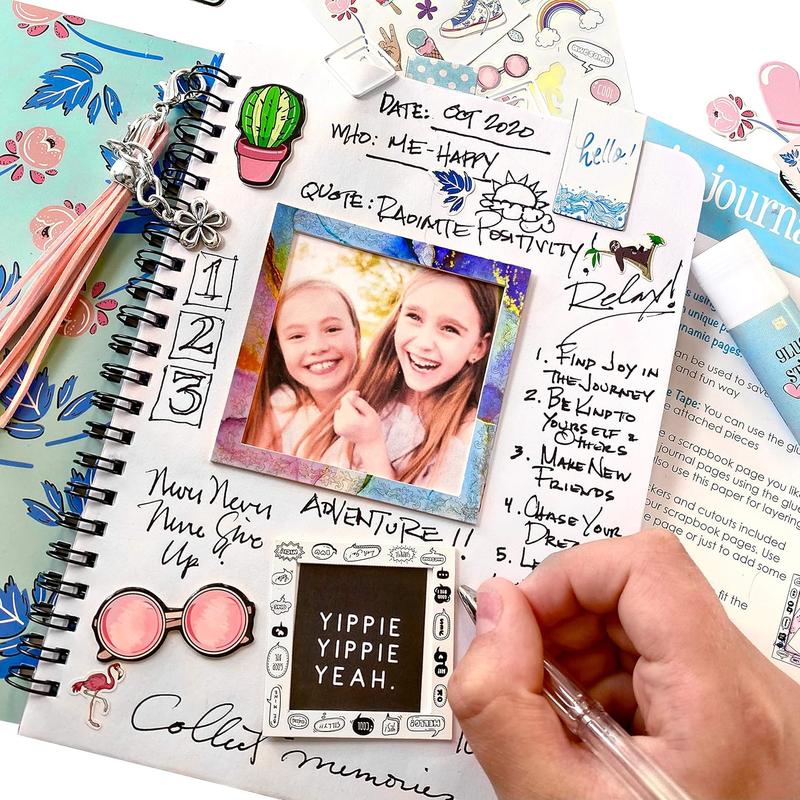 AWESOME
COOL
DATE: OCT 2020
WHO: ME-HAPPY
hello!
journa
QUOTE: RADIATE POSITIVITY!
Relax!
1
2
3
1. FIND JOY IN
THE JOURNEY
2. BE KIND TO
YOURSELF &
OTHERS
3. MAKE NEW
FRIENDS
4. CHASE YOUR
5.
Never Never
Never Give
Up!
ADVENTURE!!
YIPPIE
YIPPIE
YEAH.
HELLO!
COOL
SILLY!
Collect memories
GLUE
unique p
dynamic pages:
can be used to save
and fun way
Tape: You can use the glu
attached pieces
a scrapbook page you like
journal pages using the glue
also use this paper for layering
and cutouts included
scrapbook pages. Use
page or just to add some
fit the